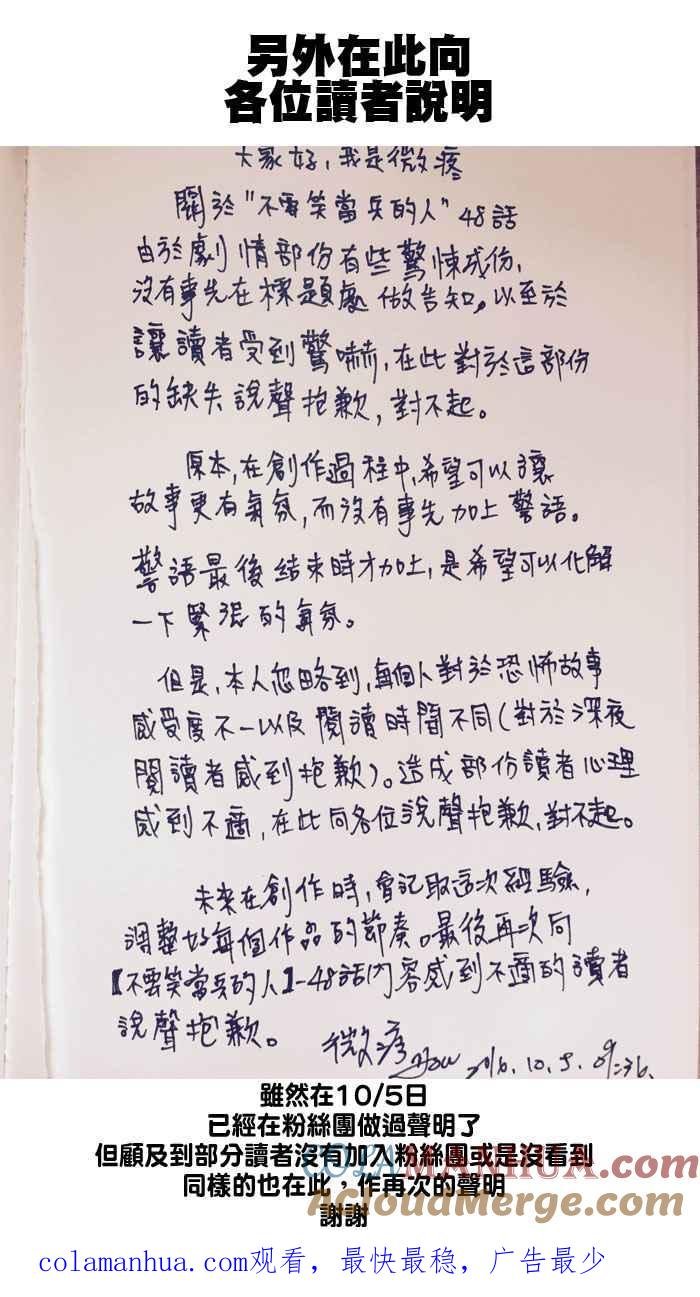 另外在此向
各位讀者說明
大家好，我是微疼
關於"不要笑當兵的人"48話
由於劇情部份有些驚悚成份，
沒有事先在標題處做告知，以至於
讓讀者受到驚嚇，在此對於這部份
的缺失說聲抱歉，對不起。
原本，在創作過程中，希望可以讓
故事更有氣氛，而沒有事先加上警語。
警語最後結束時才加上，是希望可以化解
一下緊張的氣氛。
但是，本人忽略到，每個人對於恐怖故事
感受度不一以及閱讀時間不同(對於深夜
閱讀者感到抱歉)。造成部份讀者心理
感到不適，在此向各位說聲抱歉，對不起。
未來在創作時，會記取這次經驗，
調整好每個作品的節奏。最後再次向
【不要笑當兵的人】-48話內容感到不適的讀者
說聲抱歉。
微疼 2016.10.5.
雖然在10/5日
已經在粉絲團做過聲明了
但顧及到部分讀者沒有加入粉絲團或是沒看到
同樣的也在此，作再次的聲明
謝謝
COLAMANHUA.com
AcloudMerge.com
colamanhua.com观看，最快最稳，广告最少